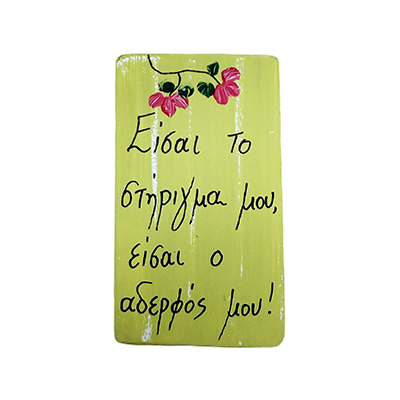 Είσαι το
στήριγμα μου,
είσαι ο
αδερφός μου!